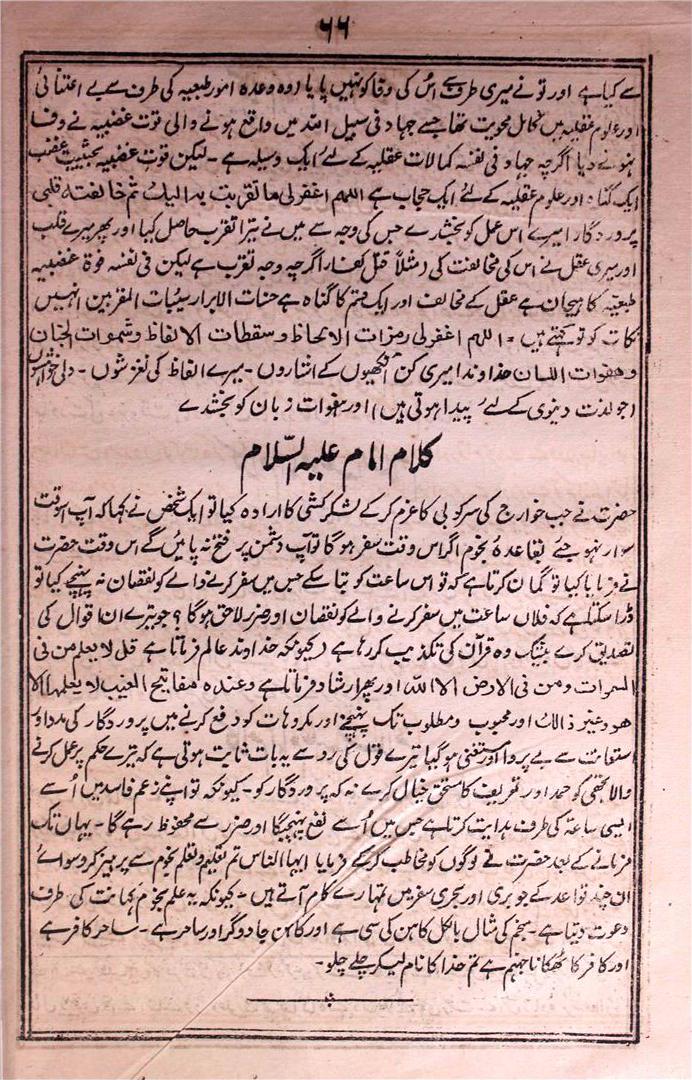 ۶۶
سے کیا ہے اور تو نے میری طرف سے اس کی وفا کو نہیں پایا (وہ وعدہ امور طبعیہ کی طرف سے بے اعتنائی
اور علوم عقلیہ میں کامل محویت تھا جسے جہاد فی سبیل اللہ میں واقع ہونے والی قوت غضبیہ نے وفا
نہونے دیا اگرچہ جہاد فی نفسہ کمالات عقلیہ کے لئے ایک وسیلہ ہے ۔ لیکن قوت غضبیہ بحیثیت غضب
ایک گناہ اور علوم عقلیہ کے لئے ایک حجاب ہے اللھم اغفر لی ما تقربت بہ الیک ثم خالفتہ قلبی
پروردگارا میرے اس عمل کو بخشدے جس کی وجہ سے میں نے تیرا تقرب حاصل کیا اور پھر میرے قلب
اور میری عقل نے اس کی مخالفت کی (مثلاً قتل کفار اگرچہ وجہ تقرب ہے لیکن فی نفسہ قوۃ غضبیہ
طبعیہ کا ہیجان ہے عقل کے مخالف اور ایک قسم کا گناہ ہے حسنات الابرار سیئات المقربین انہیں
نکات کو تو کہتے ہیں ۔ اللھم اغفر لی رمزات الالحاظ وسقطات الالفاظ وشھوات الجنان
وھفوات اللسان خداوندا میری کن انکھیوں کے اشاروں ۔ میرے الفاظ کی لغزشوں ۔ دلی خواہشوں
(جو لذت دنیوی کے لئے پیدا ہوتی ہیں) اور ہفوات زبان کو بخشدے
کلام امام علیہ السّلام
حضرت نے جب خوارج کی سرکوبی کا عزم کر کے لشکر کشی کا ارادہ کیا تو ایک شخص نے کہا کہ آپ اسوقت
سوار نہو جئے بقاعدۂ نجوم اگر اس وقت سفر ہوگا تو آپ دشمن پر فتح نہ پائیں گے اس وقت حضرت
نے فرمایا کیا تو گمان کرتا ہے کہ تو اس ساعت کو بتا سکے جس میں سفر کرنے والے کو نقصان نہ پہنچے کیا تو
ڈرا سکتا ہے کہ فلاں ساعت میں سفر کرنے والے کو نقصان اور ضرر لاحق ہوگا ؟ جو تیرے ان اقوال کی
تصدیق کرے بیشک وہ قرآن کی تکذیب کر رہا ہے (کیونکہ خداوند عالم فرماتا ہے قل لا یعلم من فی
السموات ومن فی الارض الا اللہ اور پھر ارشاد فرماتا ہے وعندہ مفاتیح الغیب لا یعلمھا الا
ھو وغیر ذالک اور محبوب و مطلوب تک پہنچنے اور مکروہات کو دفع کرنے میں پروردگار کی مدد اور
استعانت سے بے پروا اور مستغنی ہوگیا تیرے قول کی رو سے یہ بات ثابت ہوتی ہے کہ تیرے حکم پر عمل کرنے
والا تجھی کو حمد اور تعریف کا مستحق خیال کرے نہ کہ پروردگار کو ۔ کیونکہ تو اپنے زعم فاسد میں اُسے
ایسی ساعۃ کی طرف ہدایت کرتا ہے جس میں اُسے نفع پہنچیگا اور ضرر سے محفوظ رہے گا ۔ یہاں تک
فرمانے کے بعد حضرت نے لوگوں کو مخاطب کر کے فرمایا ایہا الناس تم تعلیم و تعلم نجوم سے پرہیز کرو سوائے
ان چند قواعد کے جو بری اور بحری سفر میں تمہارے کام آتے ہیں ۔ کیونکہ یہ علم نجوم کہانت کی طرف
دعوت دیتا ہے ۔ منجم کی مثال بالکل کاہن کی سی ہے اور کاہن جادوگر اور ساحر ہے ۔ ساحر کافر ہے
اور کافر کا ٹھکانا جہنم ہے تم خدا کا نام لیکر چلے چلو ۔